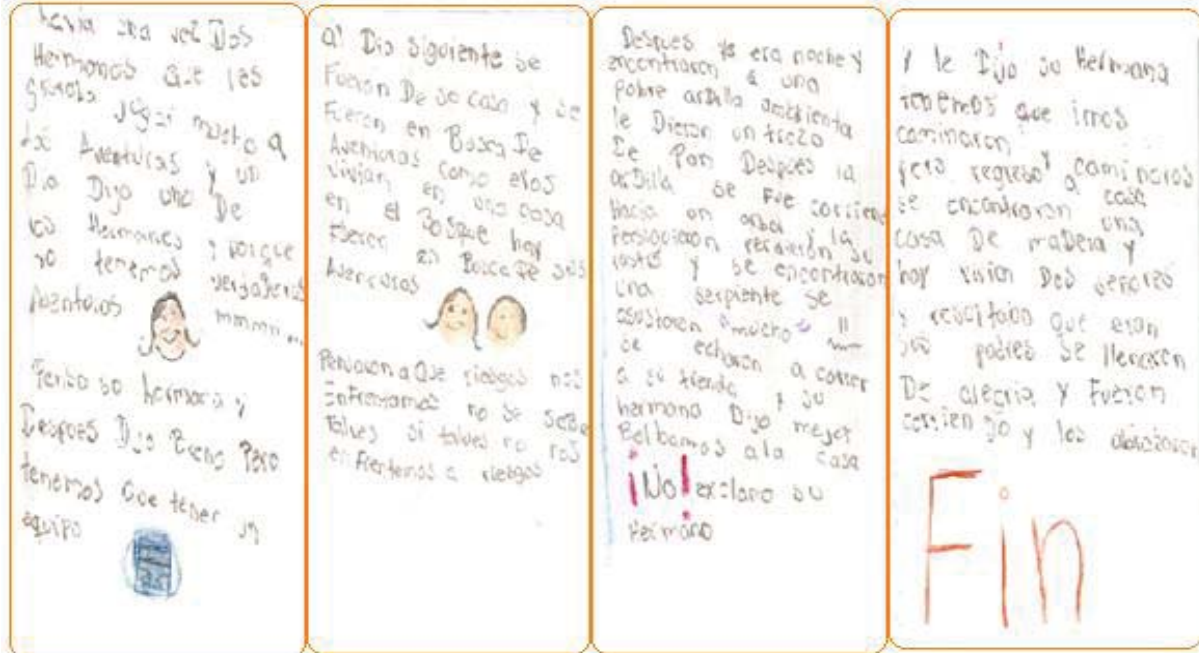 havia una vez Dos
Hermanos Que les
gustaba jugar mucho a
las Aventuras y un
Dia Dijo uno De
los Hermanos ¿porque
no tenemos verdaderas
Aventuras mmmm...
Penso su hermana y
Despues Dijo Bueno Pero
tenemos Que tener un
equipo
al Dia siguiente se
Fueron De su casa y se
Fueron en Busca De
Aventuras como ellos
vivian en una casa
en el Bosque hay
Fueron en Busca De sus
Aventuras
Pensaron a Que riesgos nos
Enfrentamos no se sera
talves si talves no nos
enfrentemos a riesgos
Despues ya era noche y
encontraron a una
pobre ardilla ambrienta
le Dieron un trozo
De Pan Despues la
ardilla se Fue corriendo
Hacia un arbol y la
Persiguieron su
rastro y se encontraron
una serpiente se
asustaron "mucho" !!
se echaron a correr
a su tienda y su
hermana Dijo mejor
Bolbamos ala casa
¡No! exclamo su
Hermano
y le Dijo su Hermana
tenemos que irnos
caminaron y caminaron
pero regreso a casa
se encontraron una
casa De madera y
hay vivian Dos señores
y resultado que eran
sus padres se llenaron
De alegria y Fueron
corriendo y los abrazaron
Fin